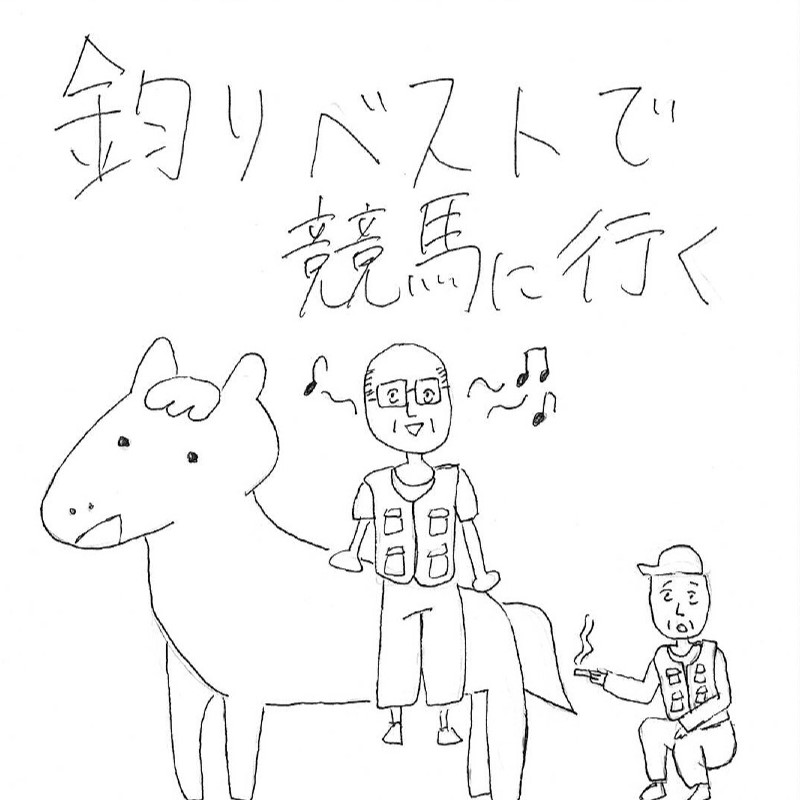 釣りベストで
競馬に行く